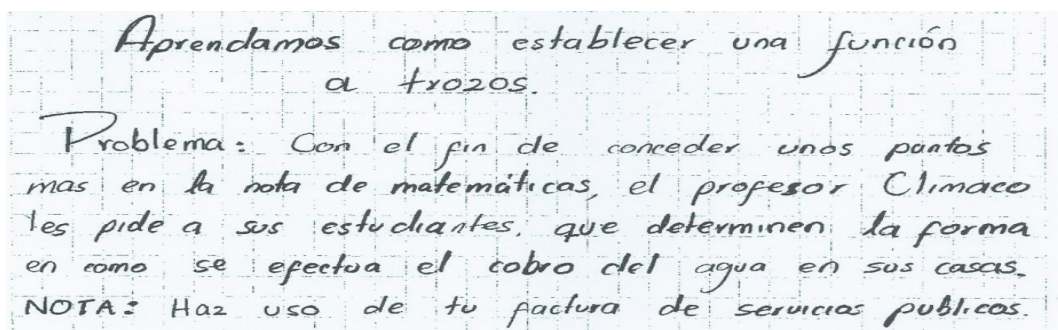 Aprendamos como establecer una función
a trozos.
Problema: Con el fin de conceder unos puntos
mas en la nota de matemáticas, el profesor Climaco
les pide a sus estudiantes, que determinen la forma
en como se efectua el cobro del agua en sus casas.
NOTA: Haz uso de tu factura de servicios publicos.